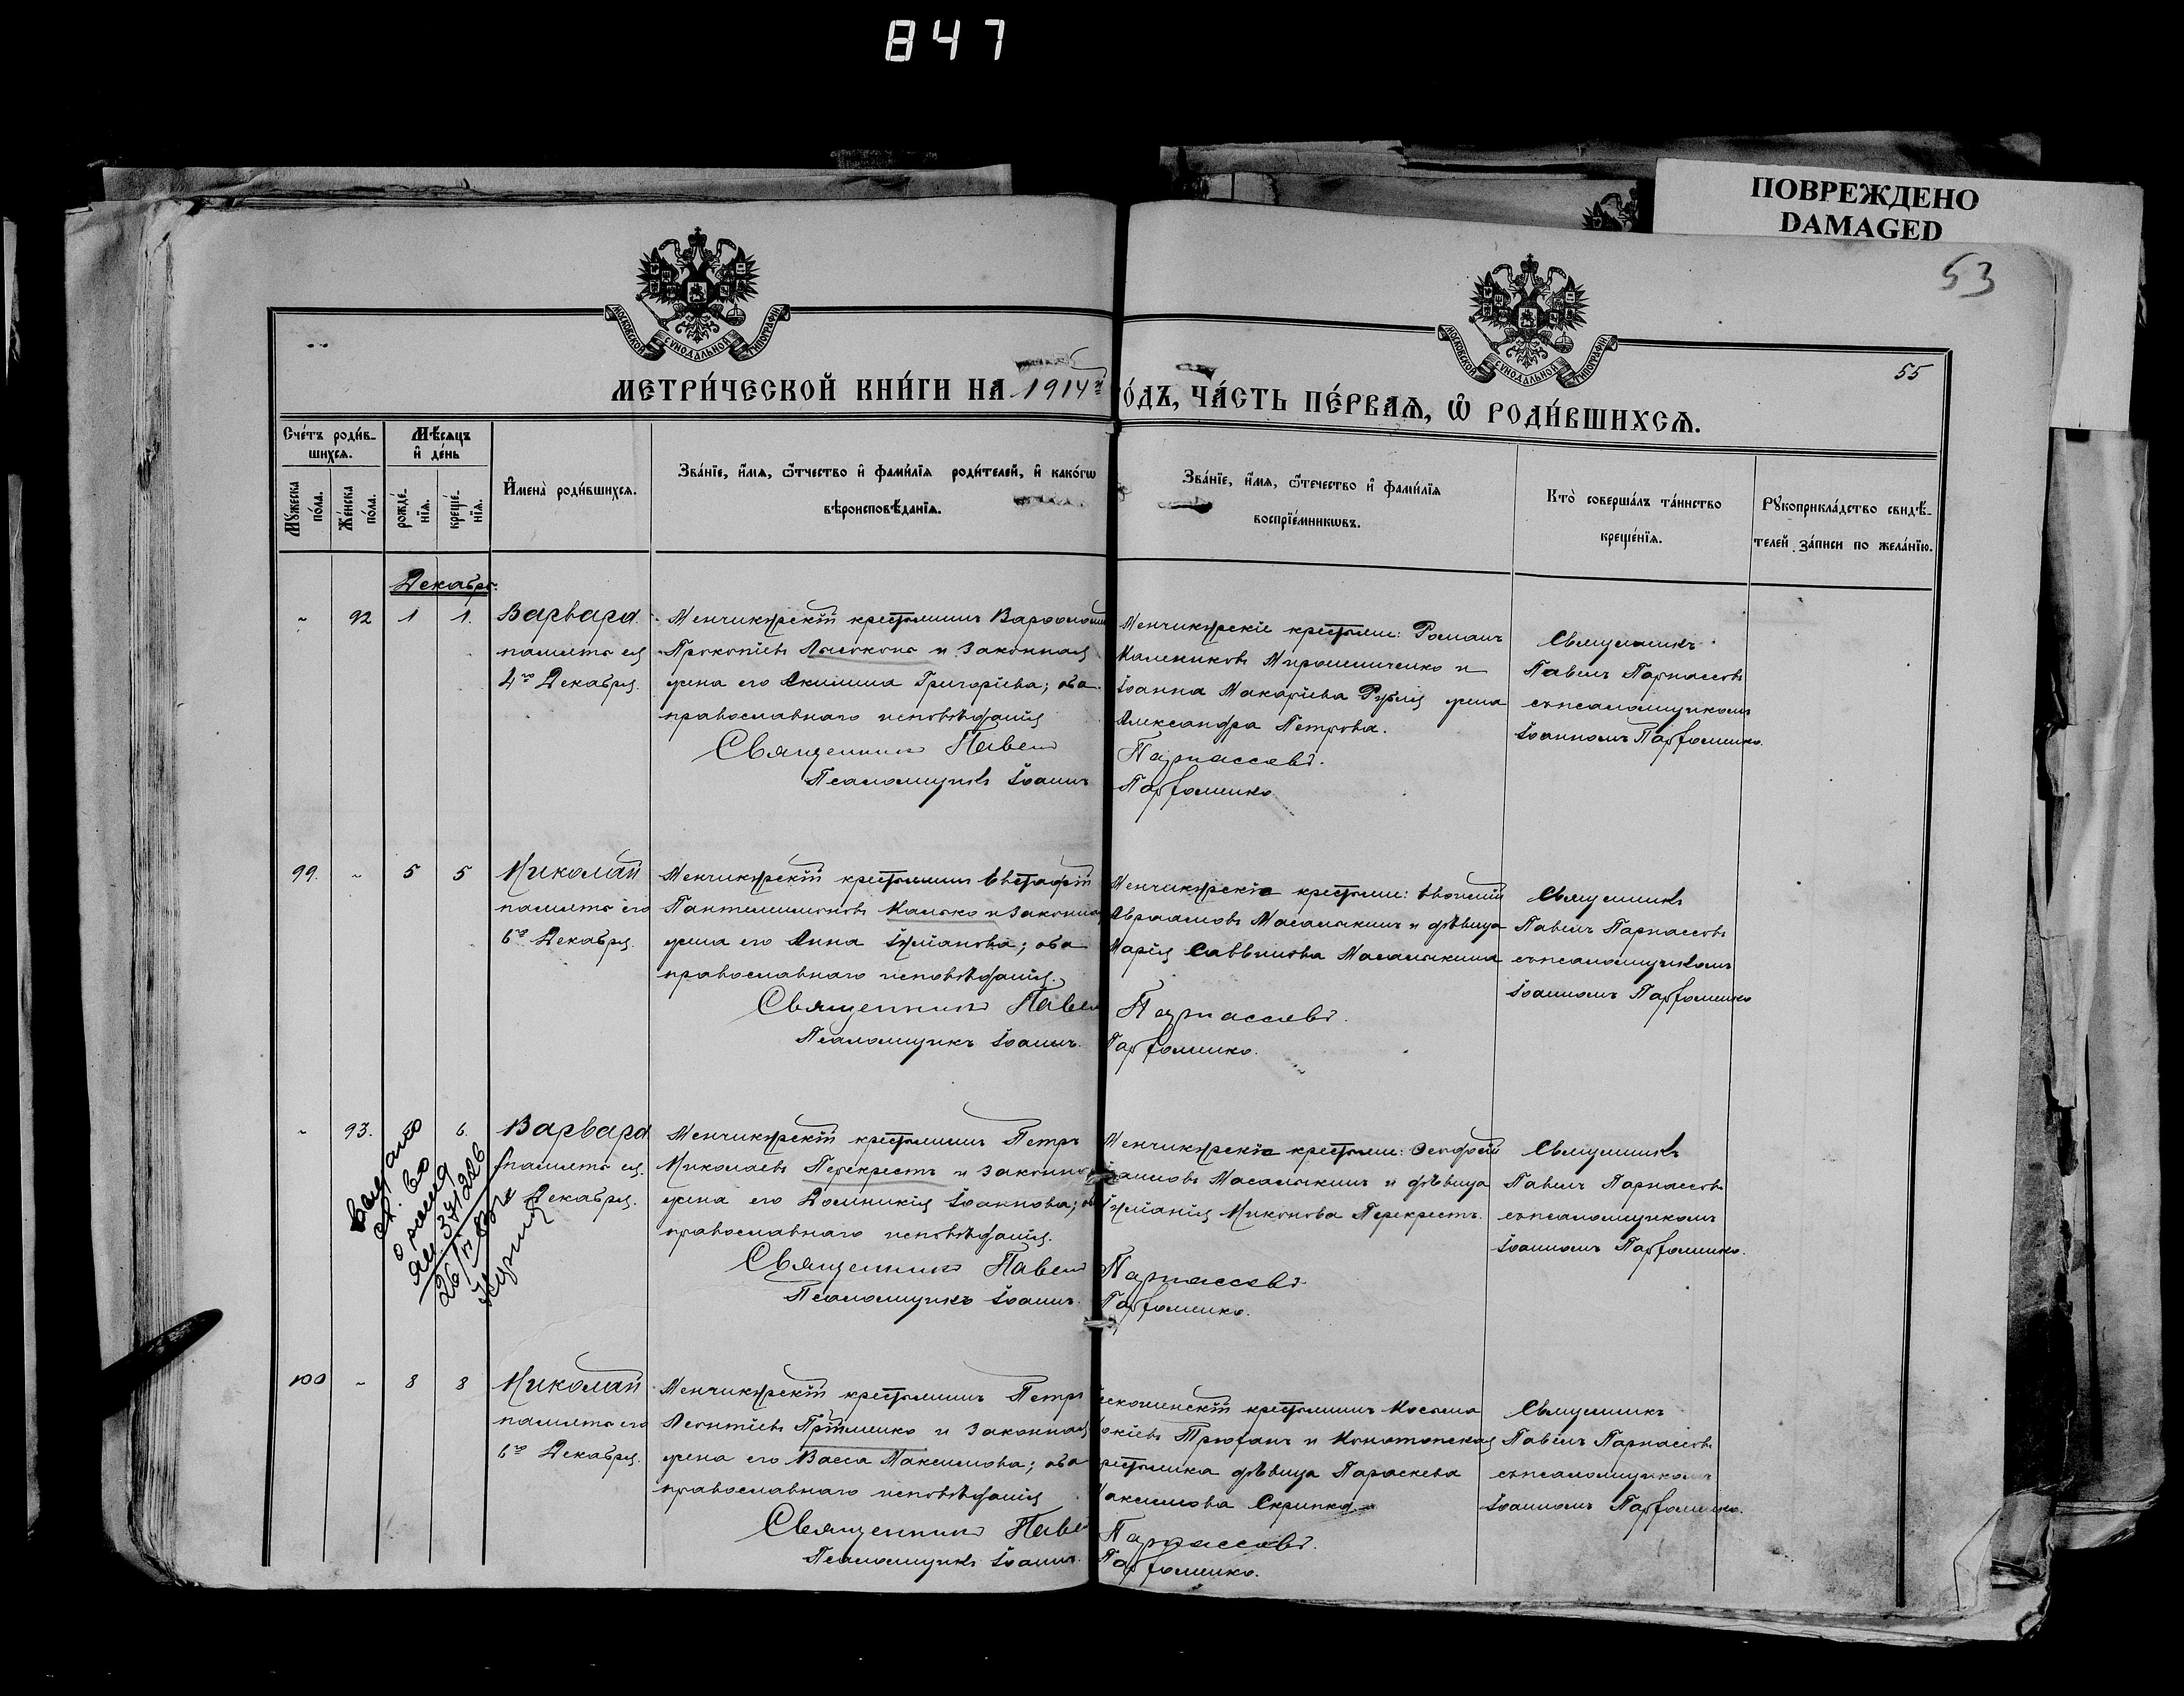 847
ПОВРЕЖДЕНО
DAMAGED
53
55
МОСКОВСКОЙ СѴНОДАЛЬНОЙ ТИПОГРАФІИ
МОСКОВСКОЙ СѴНОДАЛЬНОЙ ТИПОГРАФІИ
МЕТРИ́ЧЕСКОЙ КНИ́ГИ НА 1914й
О́ДЪ, ЧА́СТЬ ПЕ́РВАѦ, Ѽ РОДИ́ВШИХСѦ.
Сче́тъ роди́в-
шихсѧ.
Мѣ́сѧцъ
и҆ де́нь
Мꙋ́жеска по́ла.
Же́нска по́ла.
рожде́-нїѧ.
креще́-нїѧ.
И҆мена̀ роди́вшихсѧ.
Зва́нїе, и҆́мѧ, ѻ҆́тчество и҆ фами́лїѧ роди́телей, и҆ како́гѡ
вѣроисповѣ́данїѧ.
Зва́нїе, и҆́мѧ, ѻ҆́течество и҆ фами́лїѧ
воспрїе́мникѡвъ.
Кто̀ соверша́лъ та́инство
креще́нїѧ.
Рꙋкоприкла́дство свидѣ́-
телей за́писи по жела́нїю.
Декабрь.
92 1 1. Варвара
память ея
4го Декабря.
Менчикурскій крестьянинъ
Прокопіевъ и законная
жена его Акилина Григоріева; оба
православнаго исповѣданія
Священникъ Павелъ
Псаломщикъ Іоаннъ
Менчикурскіе крестьяне: Романъ
Калениковъ Мирошниченко и
Іоанна Макаріева Рубля жена
Александра Петрова.
Парнассовъ.
Парфоменко
Священникъ
Павелъ Парнассовъ
съ псаломщикомъ
Іоанномъ Парфоменко.
99. 5 5 Николай
память его
6го Декабря.
Менчикурскій крестьянинъ Евстафій
Пантелеимоновъ и законная
жена его Анна Іуліанова; оба
православнаго исповѣданія.
Священникъ Павелъ
Псаломщикъ Іоаннъ.
Менчикурскіе крестьяне:
Авраамовъ Масалыкинъ и дѣвица
Марія Саввинова Масалыкина
Парнассовъ.
Парфоменко.
Священникъ
Павелъ Парнассовъ
съ псаломщикомъ
Іоанномъ Парфоменко
93. 6. Варвара
память ея.
Декабря.
Выдано
св. во
26
Менчикурскій крестьянинъ Петръ
Николаевъ Перекрестъ и законная
жена его Домникія Іоаннова;
православнаго исповѣданія.
Священникъ Павелъ
Псаломщикъ Іоаннъ.
Менчикурскіе крестьяне: Ѳеодосій
Масалыкинъ и дѣвица
Іуліанія Никонова Перекрестъ.
Парнассовъ.
Парфоменко.
Священникъ
Павелъ Парнассовъ
съ псаломщикомъ
Іоанномъ Парфоменко.
100 8 8 Николай
память его
6го Декабря.
Менчикурскій крестьянинъ Петръ
Леонтіевъ и законная
жена его Васса Максимова; оба
православнаго исповѣданія
Священникъ Павелъ
Псаломщикъ Іоаннъ.
крестьянинъ Косьма
Трюханъ и Конотопская
крестьянка дѣвица Параскева
Максимова Скрипка
Парнассовъ.
Парфоменко.
Священникъ
Павелъ Парнассовъ
съ псаломщикомъ
Іоанномъ Парфоменко.